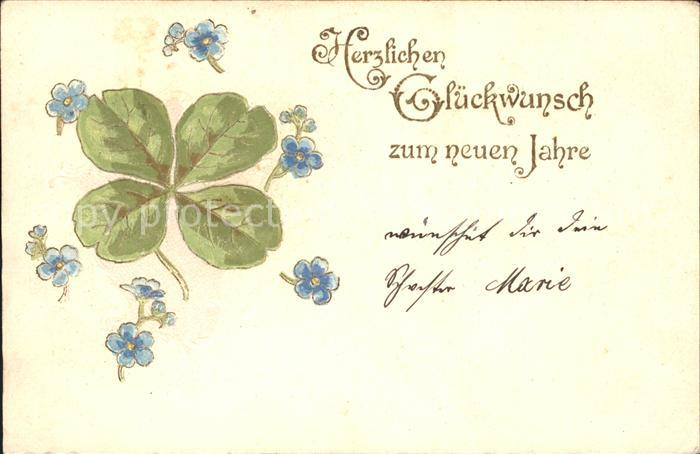 Herzlichen
Glückwunsch
zum neuen Jahre
wünscht dir dein
Schwester Marie
py protect